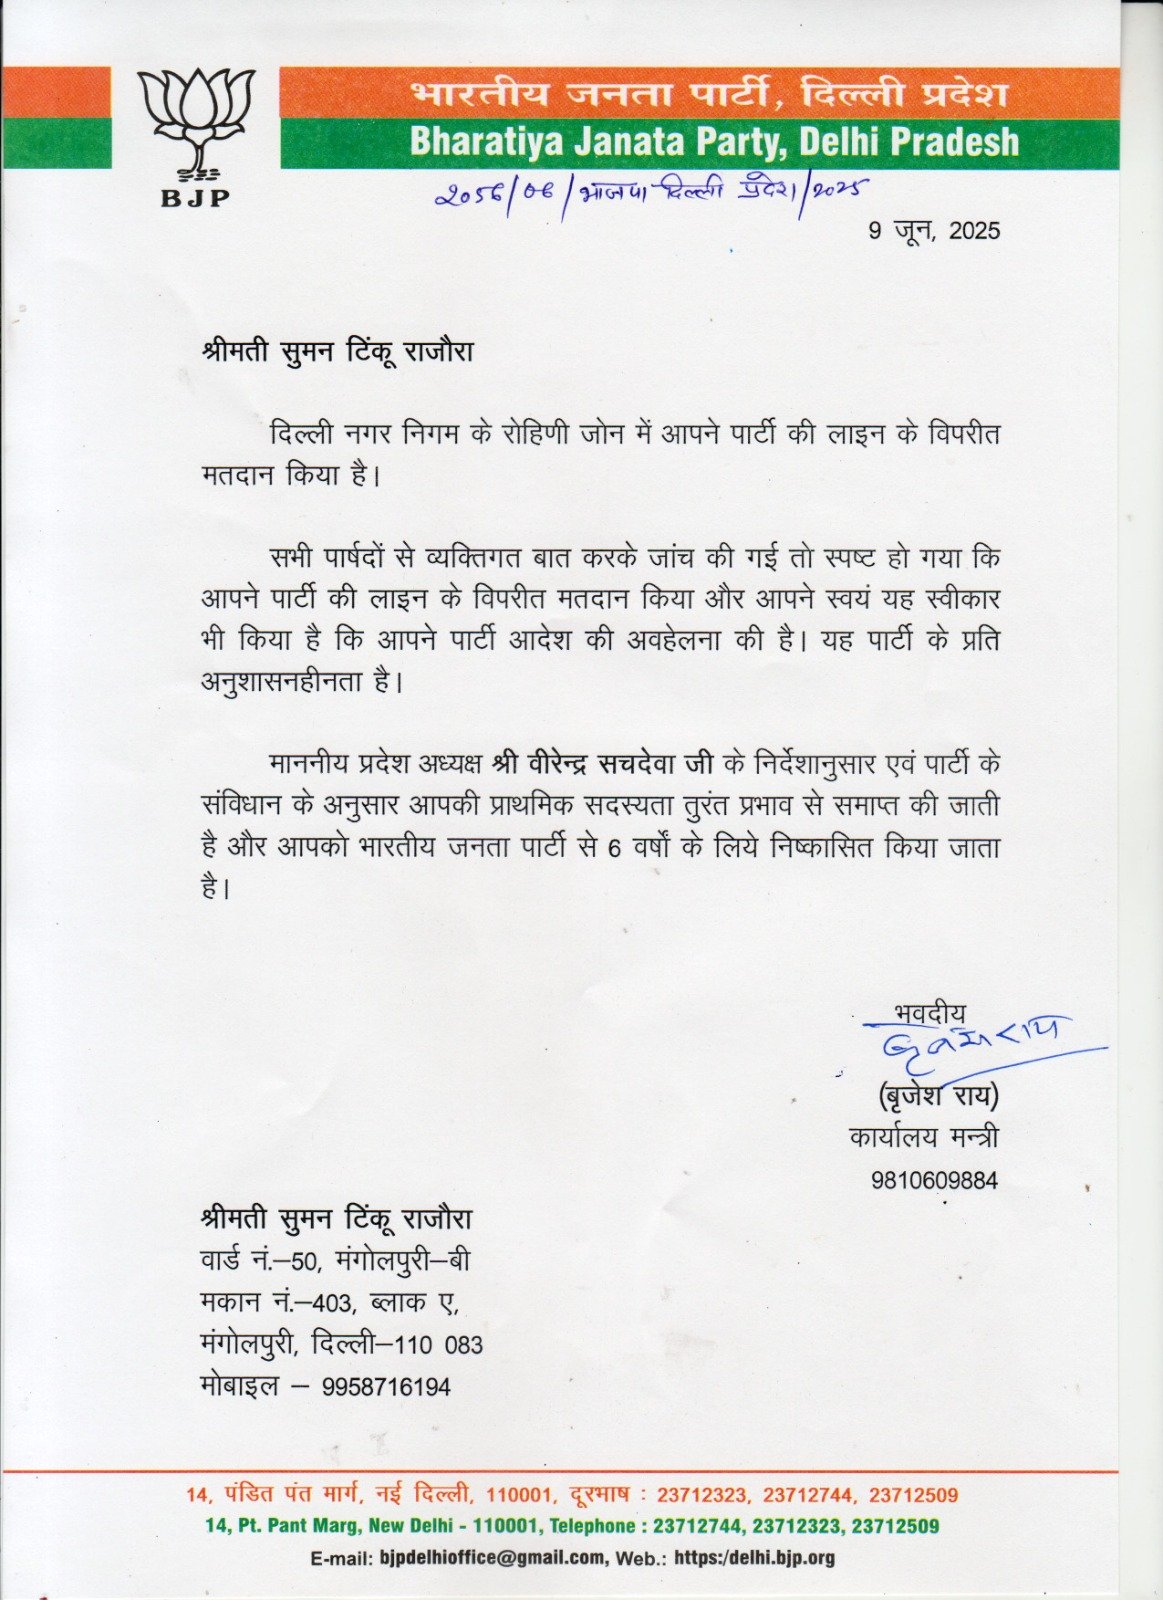 भारतीय जनता पार्टी, दिल्ली प्रदेश
Bharatiya Janata Party, Delhi Pradesh
BJP
2056/06/भाजपा दिल्ली प्रदेश/2025
9 जून, 2025
श्रीमती सुमन टिंकू राजौरा
दिल्ली नगर निगम के रोहिणी जोन में आपने पार्टी की लाइन के विपरीत
मतदान किया है।
सभी पार्षदों से व्यक्तिगत बात करके जांच की गई तो स्पष्ट हो गया कि
आपने पार्टी की लाइन के विपरीत मतदान किया और आपने स्वयं यह स्वीकार
भी किया है कि आपने पार्टी आदेश की अवहेलना की है। यह पार्टी के प्रति
अनुशासनहीनता है।
माननीय प्रदेश अध्यक्ष श्री वीरेन्द्र सचदेवा जी के निर्देशानुसार एवं पार्टी के
संविधान के अनुसार आपकी प्राथमिक सदस्यता तुरंत प्रभाव से समाप्त की जाती
है और आपको भारतीय जनता पार्टी से 6 वर्षों के लिये निष्कासित किया जाता
है।
भवदीय
बृजेश राय
(बृजेश राय)
कार्यालय मन्त्री
9810609884
श्रीमती सुमन टिंकू राजौरा
वार्ड नं.–50, मंगोलपुरी–बी
मकान नं.–403, ब्लाक ए,
मंगोलपुरी, दिल्ली–110 083
मोबाइल – 9958716194
14, पंडित पंत मार्ग, नई दिल्ली, 110001, दूरभाष : 23712323, 23712744, 23712509
14, Pt. Pant Marg, New Delhi - 110001, Telephone : 23712744, 23712323, 23712509
E-mail: bjpdelhioffice@gmail.com, Web.: https:/delhi.bjp.org